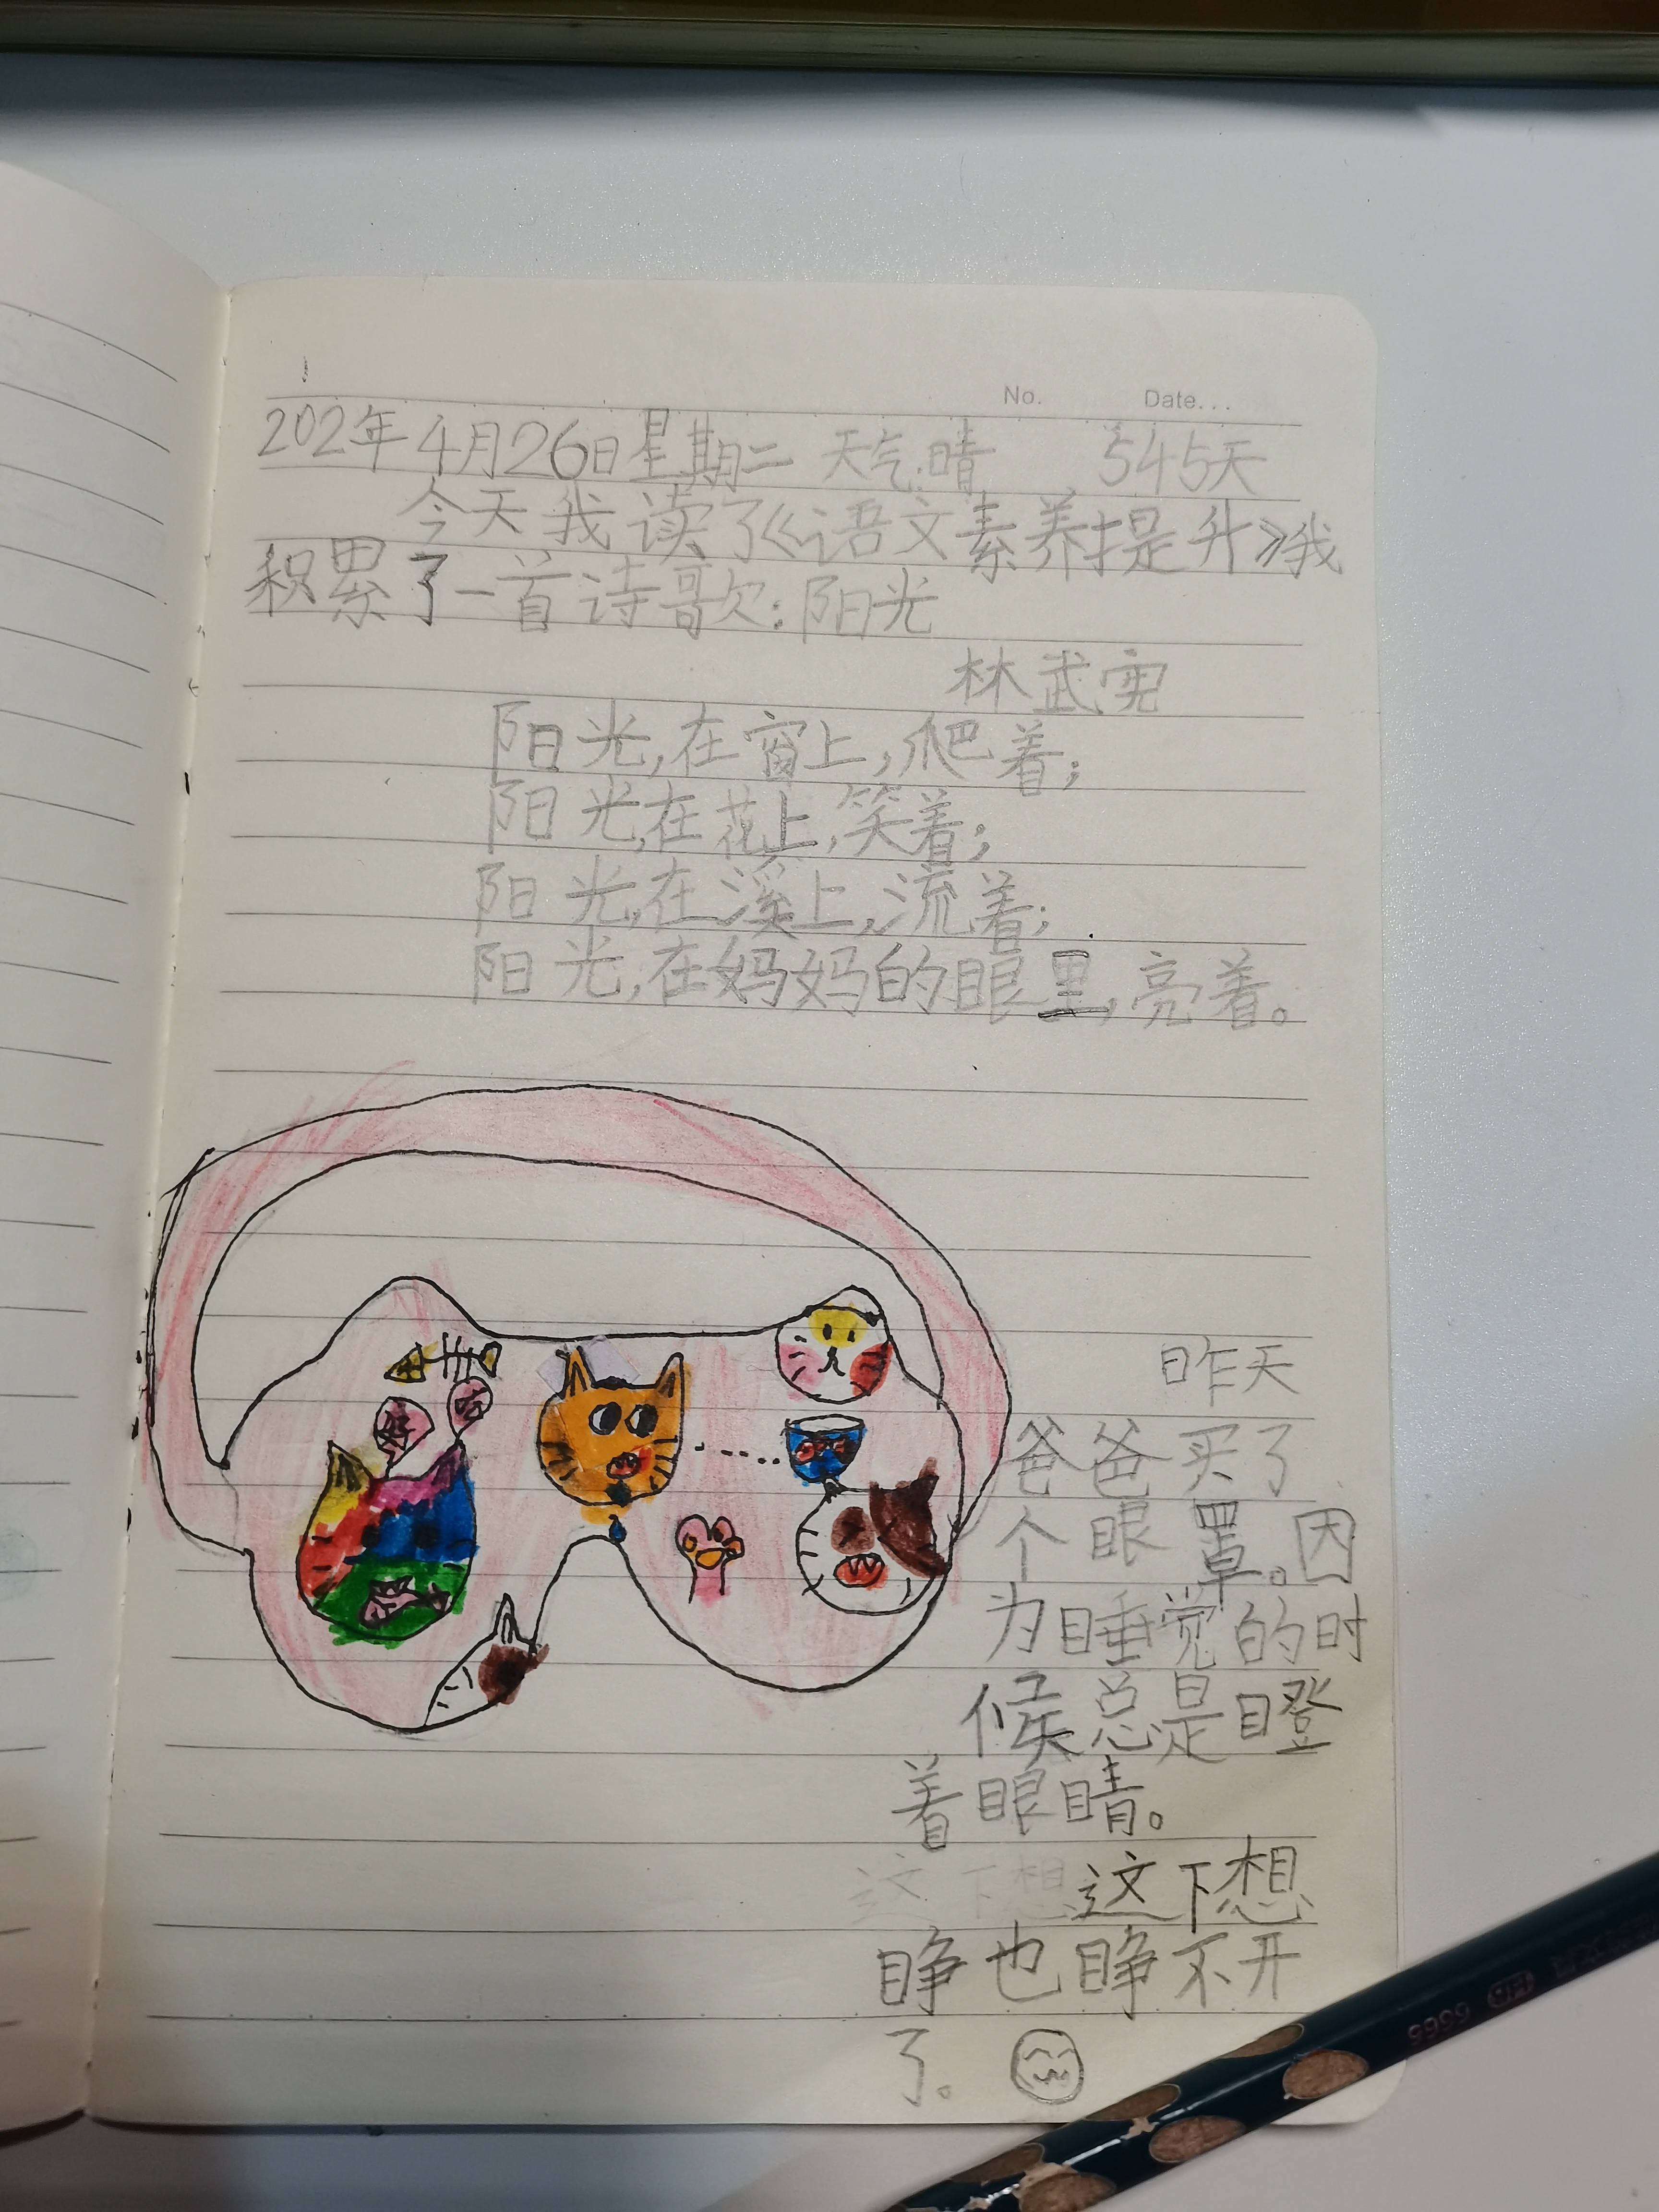 No. Date...
202年4月26日星期二 天气:晴 545天
今天我读了《语文素养提升》我
积累了一首诗歌:阳光
林武宪
阳光,在窗上,爬着;
阳光,在花上,笑着;
阳光,在溪上,流着;
阳光,在妈妈的眼里,亮着。
昨天
爸爸买了
个眼罩。因
为睡觉的时
候总是瞪
着眼睛。
这下想
睁也睁不开
了。
6666